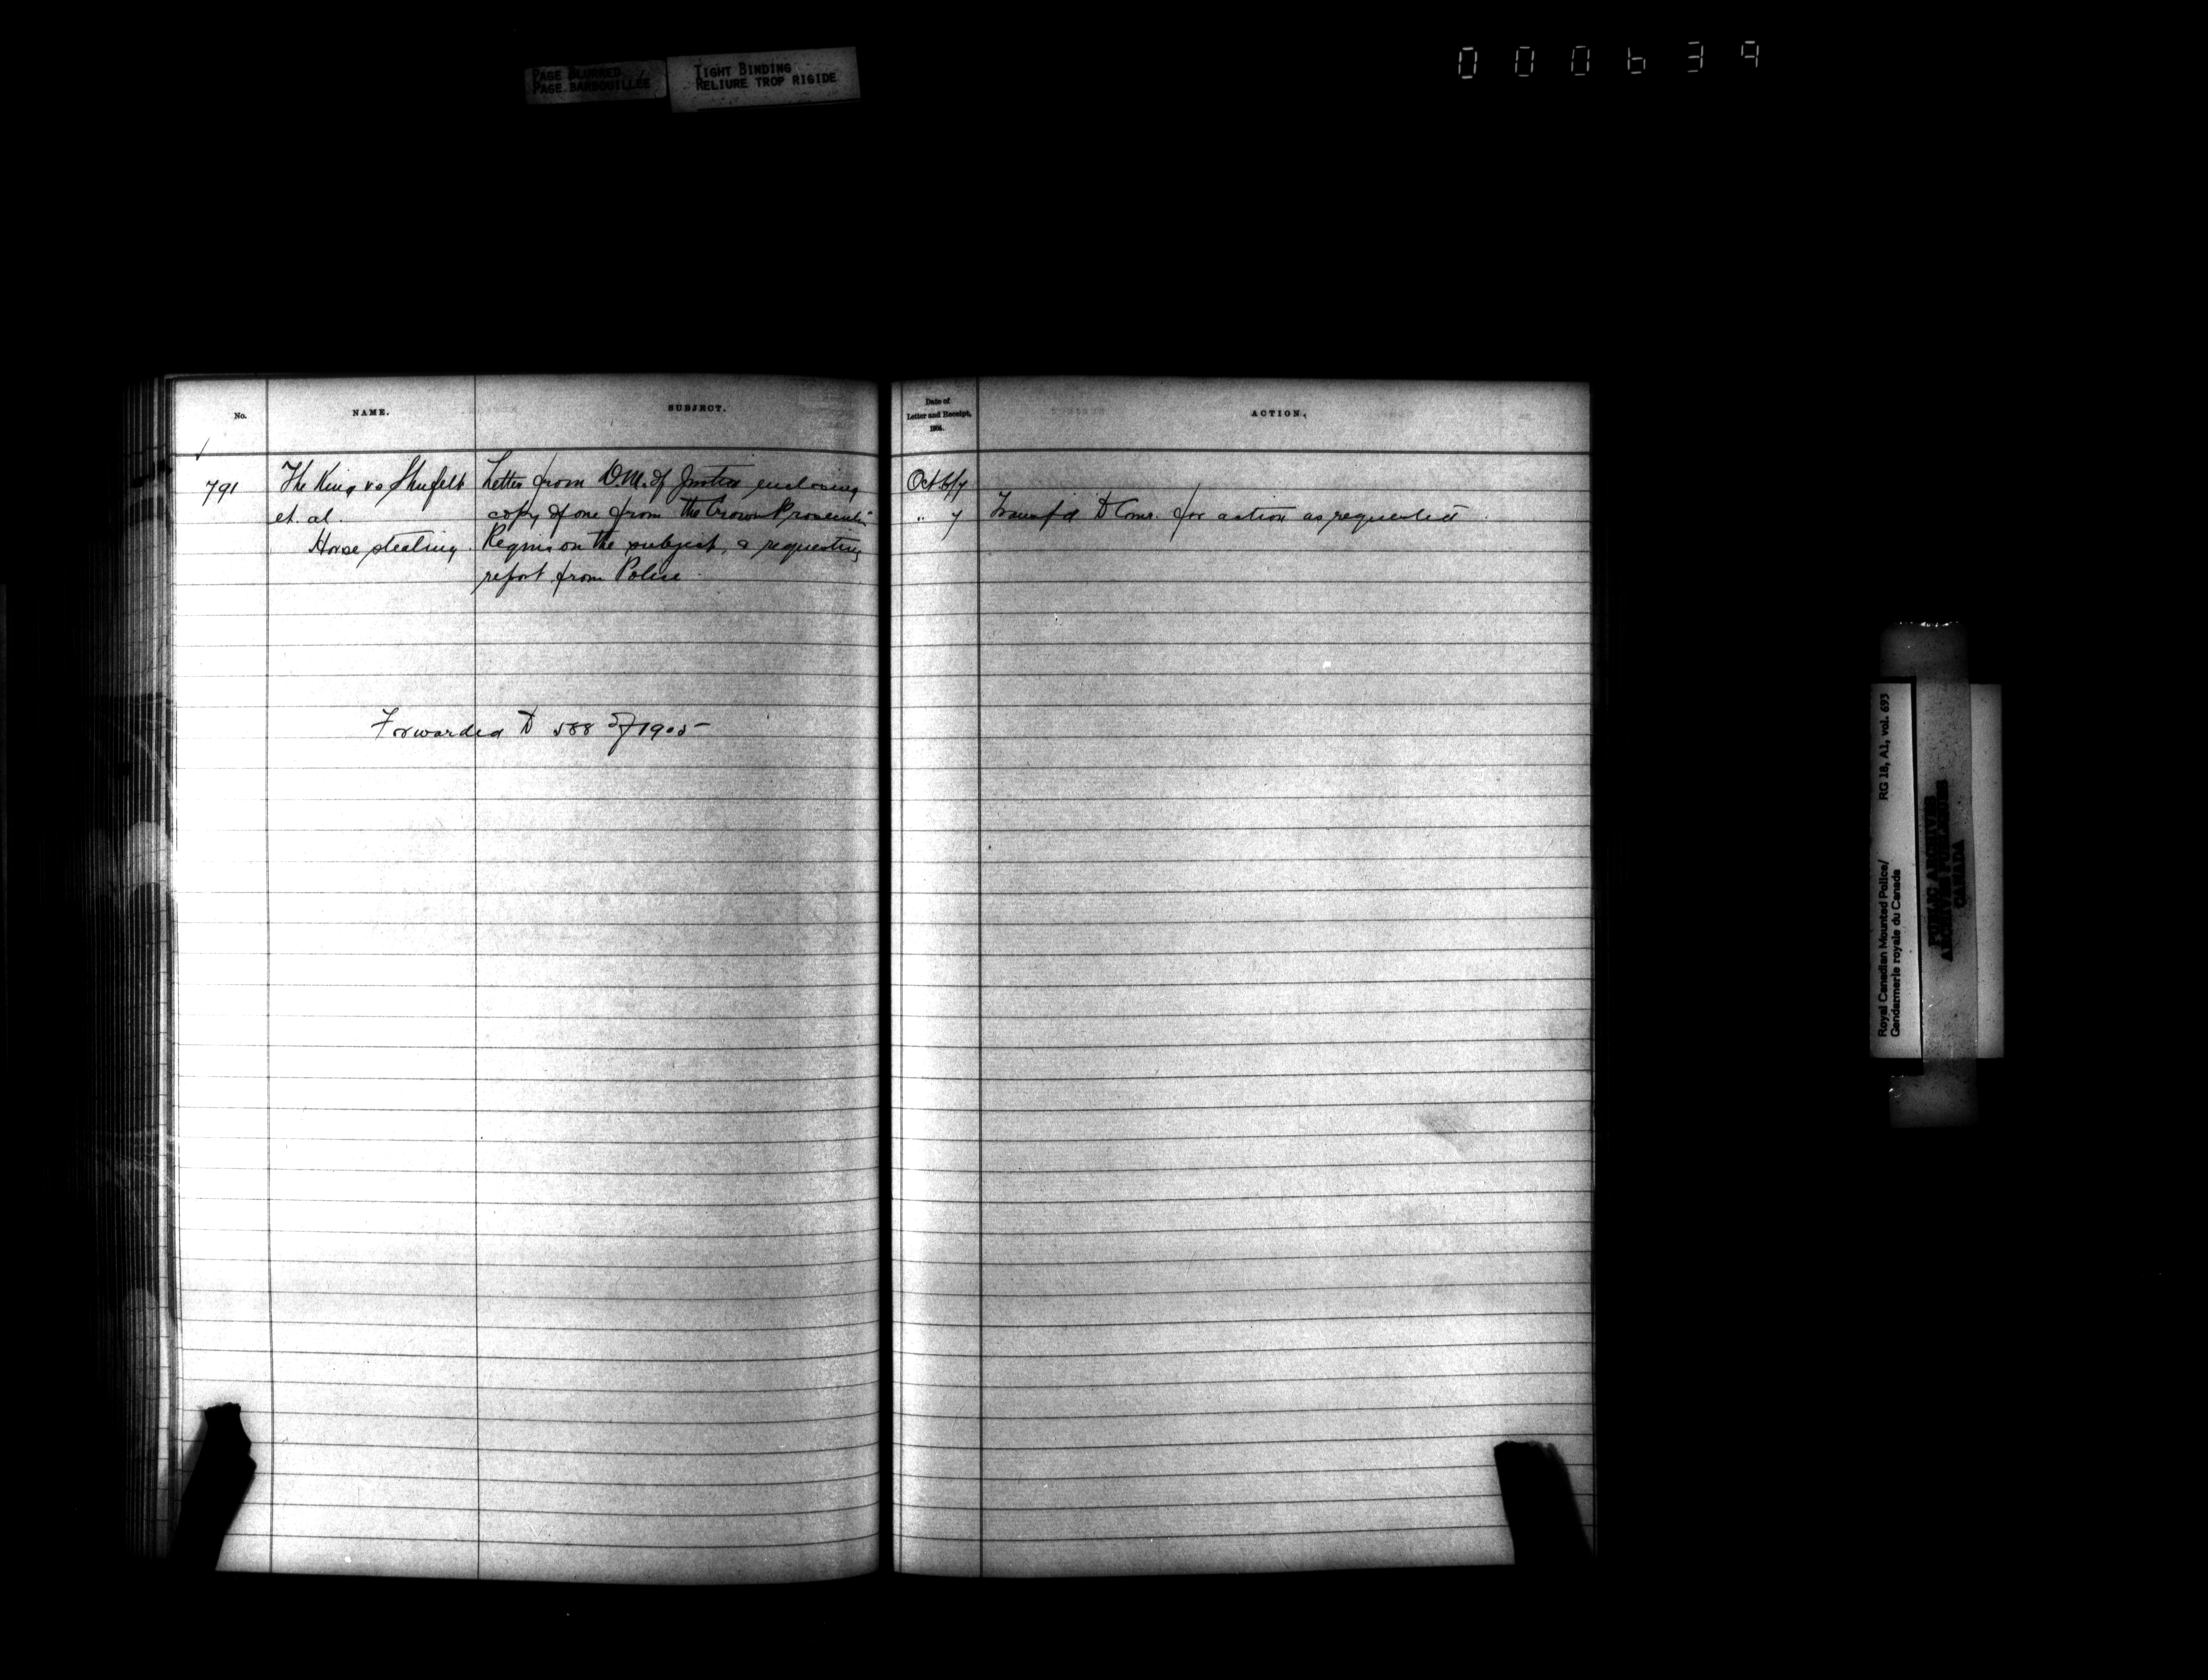 PAGE BLURRED
PAGE BARBOUILLÉE
TIGHT BINDING
RELIURE TROP RIGIDE
000639
No.
NAME.
SUBJECT.
Date of
Letter and Receipt,
1904.
ACTION.
791
The King vs Shufelt
et. al.
Horse stealing.
Letter from D.M. of Justice enclosing
copy of one from the Crown Prosecutor
Regina on the subject, & requesting
report from Police.
Forwarded to 588 of 1905
Oct. 6/7
" 7
Transf'd to Comr. for action as requested.
Royal Canadian Mounted Police/
Gendarmerie royale du Canada
RG 18, A1, vol. 693
PUBLIC ARCHIVES
ARCHIVES PUBLIQUES
CANADA